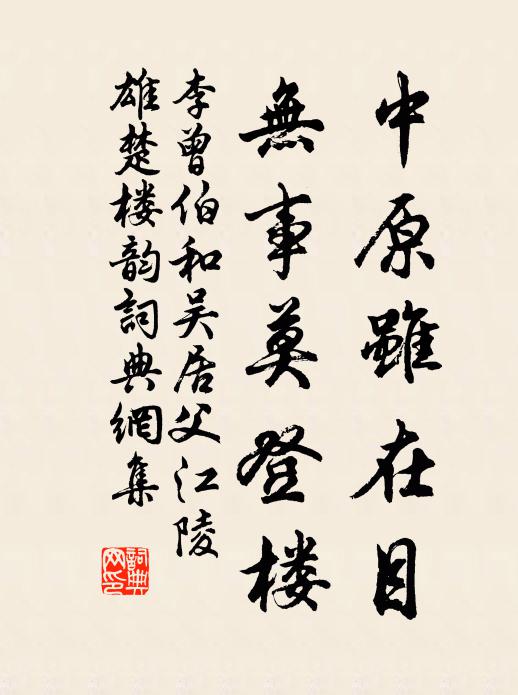 中原雖在目
無事莫登楼
李曾伯和吴居父江陵
雄楚楼韵詞典網集
詞典
网印